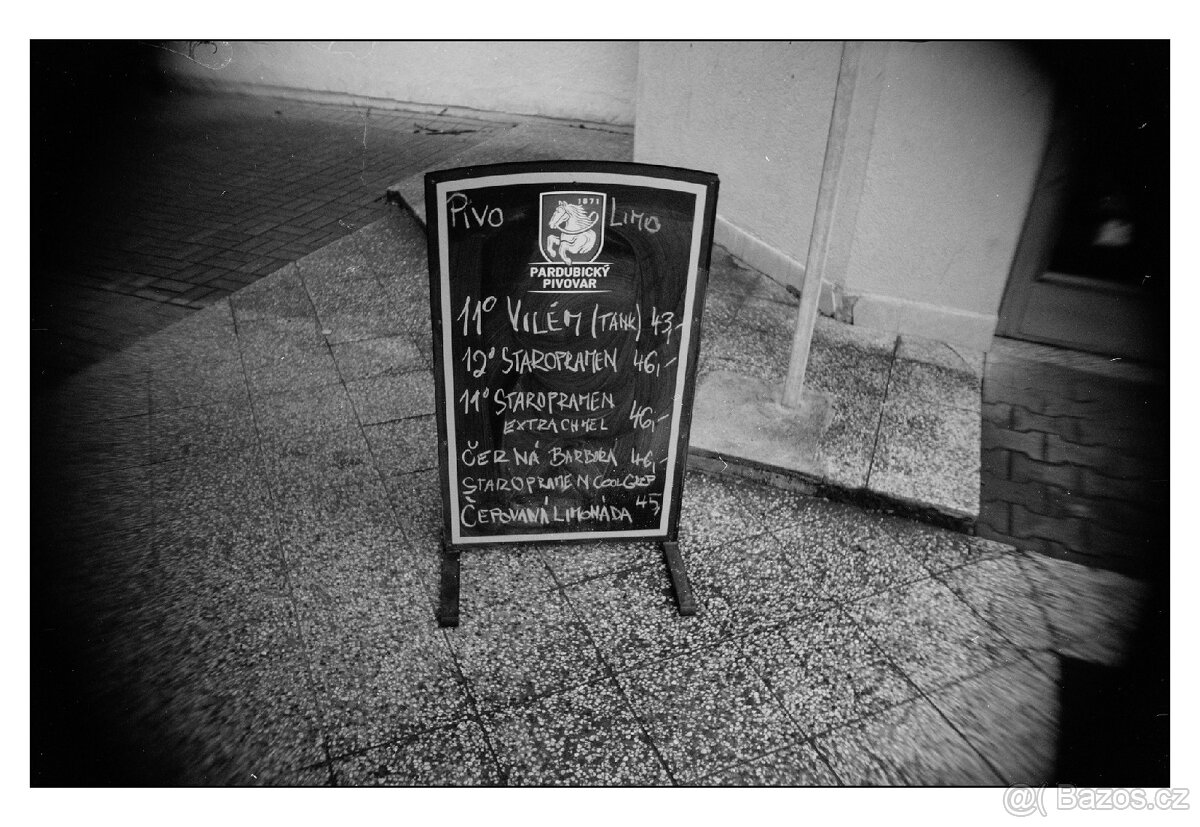 Pivo
1871
Limo
PARDUBICKÝ
PIVOVAR
11° VILÉM (TANK) 43,-
12° STAROPRAMEN 46,-
11° STAROPRAMEN
EXTRA CHMEL 46,-
ČERNÁ BARBORA 46,-
STAROPRAMEN COOL
ČEPOVANÁ LIMONÁDA 45,-
@( Bazos.cz